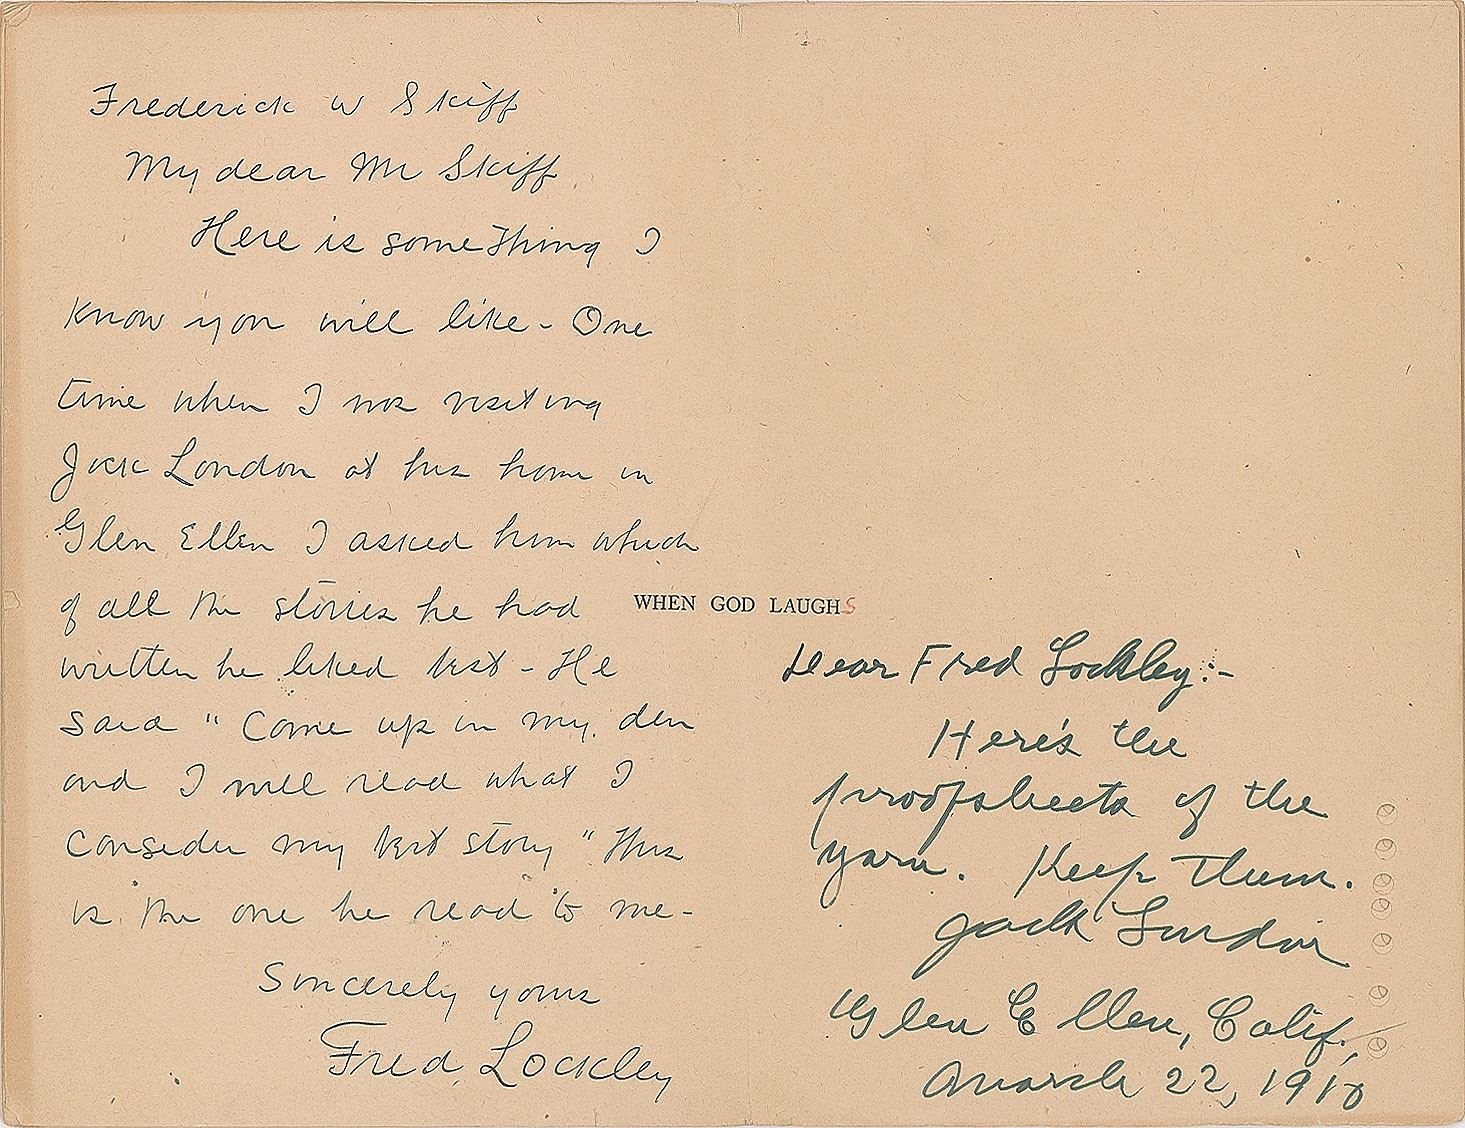 Frederick W Skiff
My dear Mr Skiff
Here is something I
know you will like - One
time when I was visiting
Jack London at his home in
Glen Ellen I asked him which
of all the stories he had
written he liked best - He
said "Come up in my den
and I will read what I
consider my best story" This
is the one he read to me -
Sincerely yours
Fred Lockley
WHEN GOD LAUGHS
Dear Fred Lockley:-
Here's the
proofsheets of the
yarn. Keep them.
Jack London
Glen Ellen, Calif.,
March 22, 1910